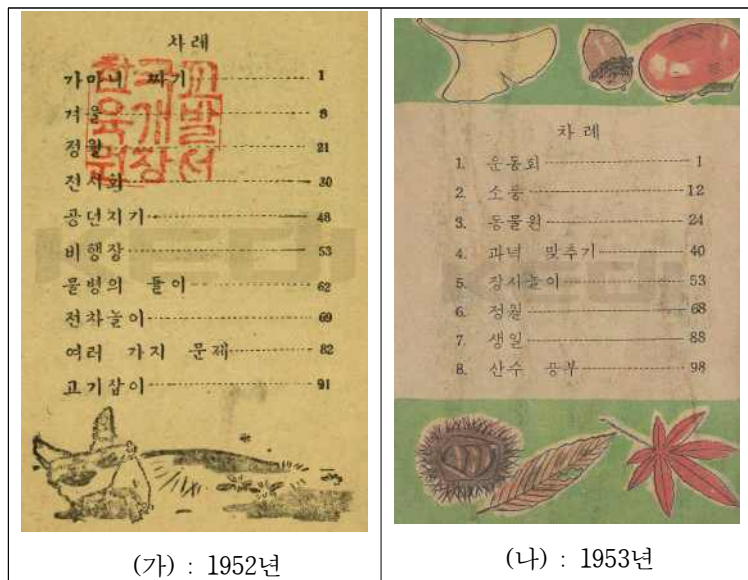 차례
가마니 짜기 1
겨울 8
정월 21
전시회 30
공던지기 48
비행장 53
물병의 들이 62
전차놀이 69
여러 가지 문제 82
고기잡이 91
한국교
육개발
원장서
(가) : 1952년
차례
1. 운동회 1
2. 소풍 12
3. 동물원 24
4. 과녁 맞추기 40
5. 장사놀이 53
6. 정월 68
7. 생일 88
8. 산수 공부 98
(나) : 1953년